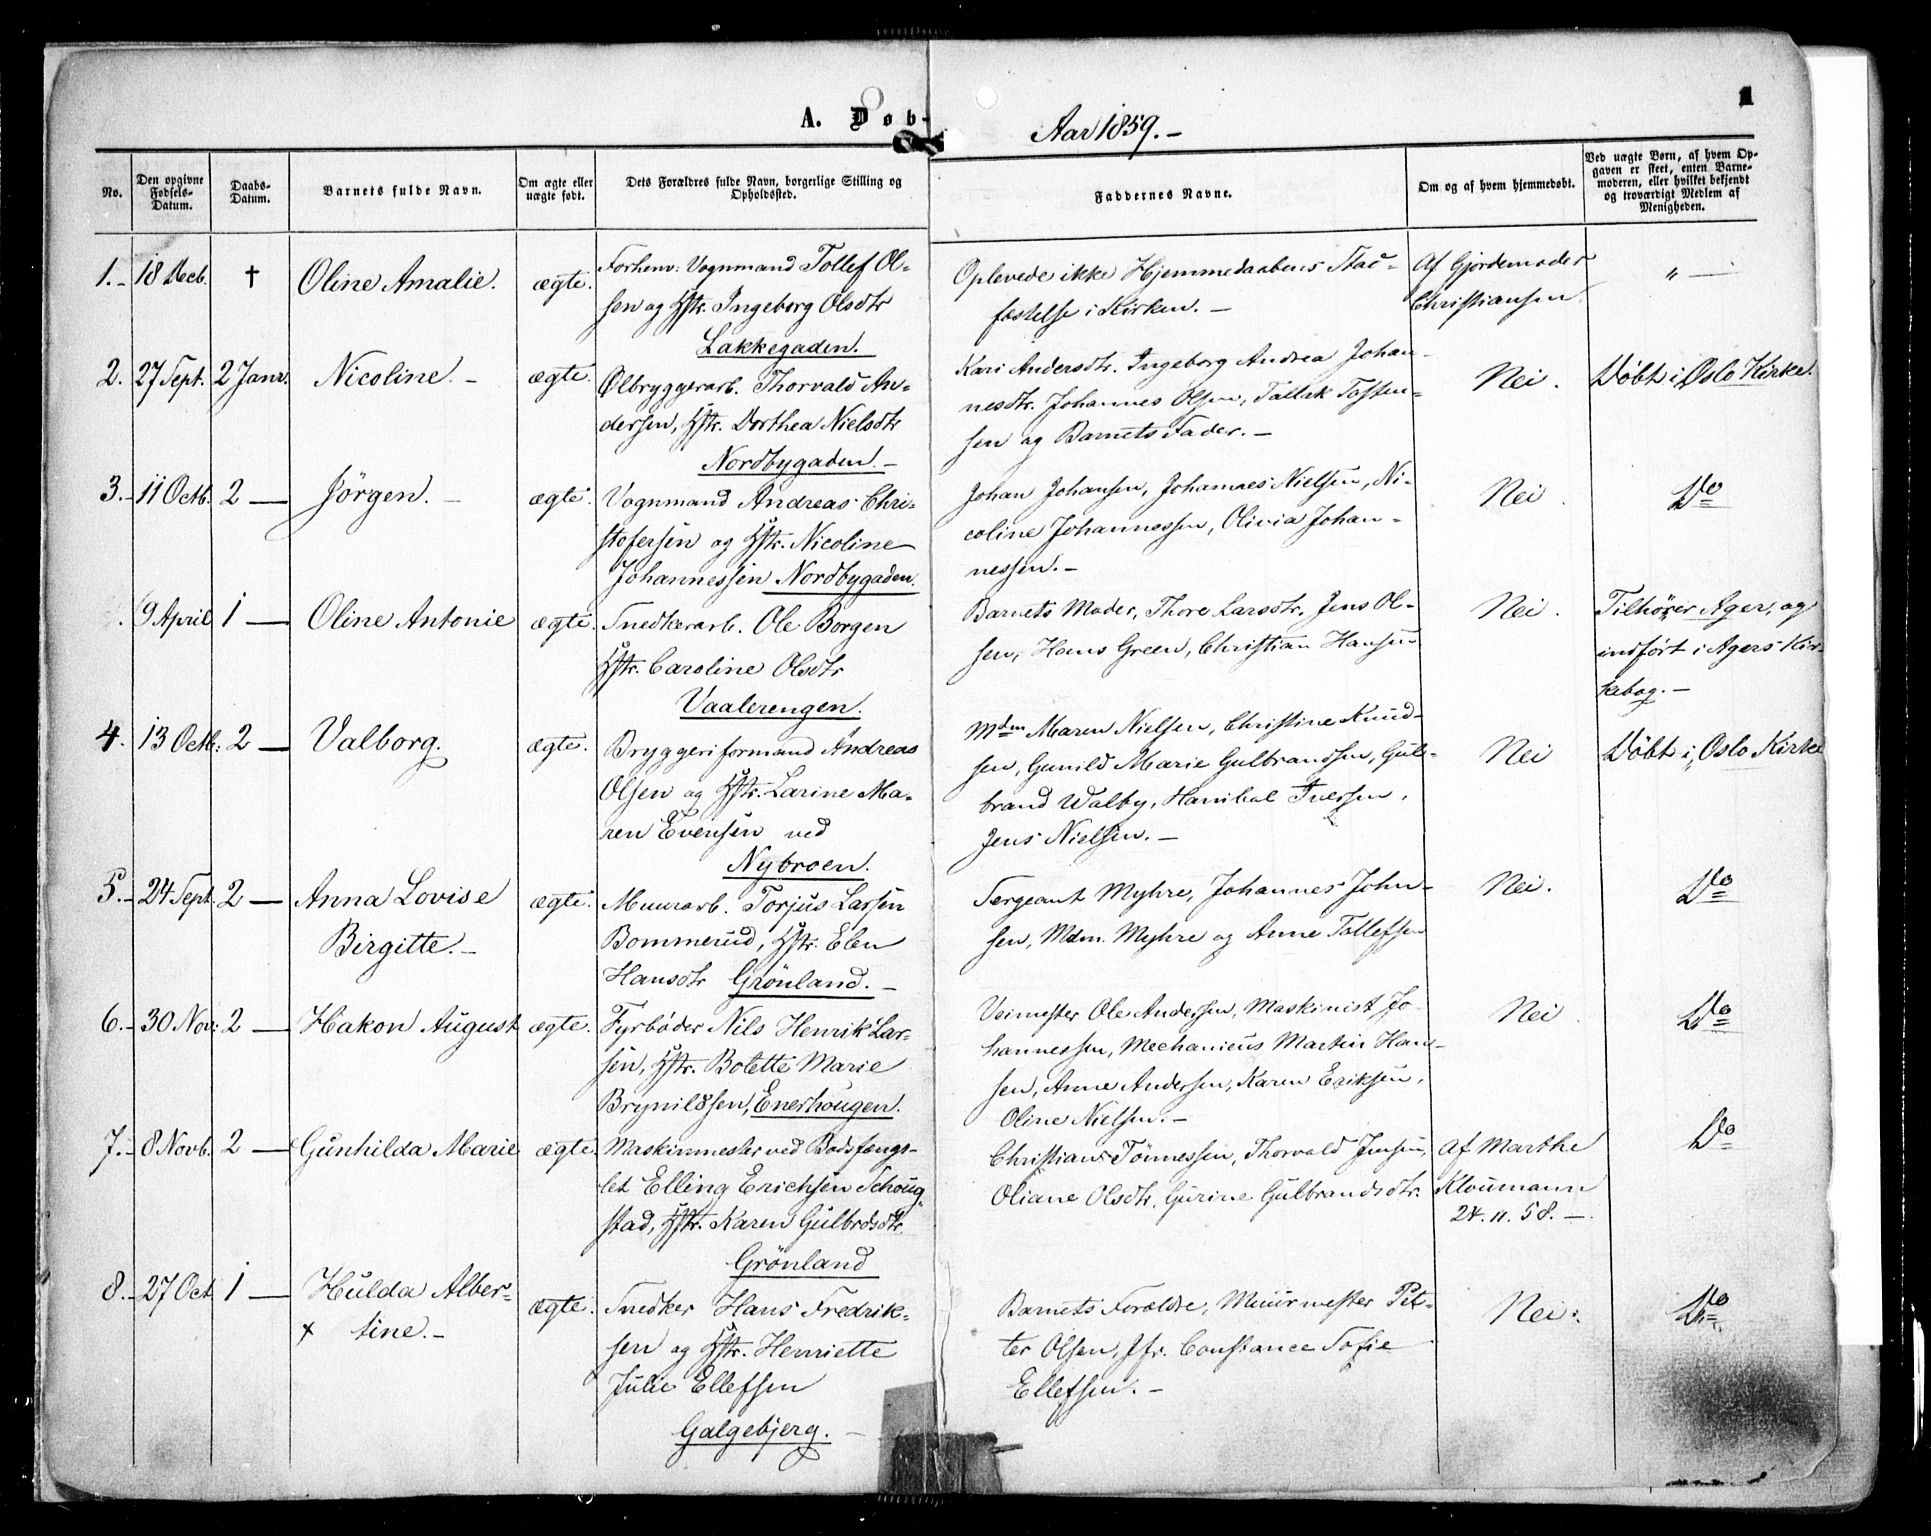 1
A. Døb-
Aar 1859.-
No.
Den opgivne Fødsels-Datum.
Daabs-Datum.
Barnets fulde Navn.
Om ægte eller uægte født.
Dets Forældres fulde Navn, borgerlige Stilling og Opholdssted.
Faddernes Navne.
Om og af hvem hjemmedøbt.
Ved uægte Børn, af hvem Opgaven er skeet, enten Barnemoderen, eller hvilket bekjendt og troværdigt Medlem af Menigheden.
1.- 18 Decb. † Oline Amalie. ægte.
Forhenv: Vognmand Tollef Ol-
sen og Hstr. Ingeborg Olsdtr
Lakkegaden.
Oplevede ikke Hjemmedaabens Stad-
fæstelse i Kirken.-
Af Gjordemoder
Christiansen
" —
2. 27 Sept. 2 Janr. Nicoline.- ægte.
Ølbryggerarb. Thorvald An-
dersen, Hstr. Dorthea Nielsdtr
Nordbygaden.-
Kari Andersdtr. Ingeborg Andrea Johan-
nesdtr. Johannes Olsen, Tallak Tossen-
sen og Barnets Fader.-
Nei.
Döbt i Oslo Kirke.
3.- 11 Octb. 2 — Jörgen.- ægte.
Vognmand Andreas Chri-
stofersen og Hstr. Nicoline
Johannessen Nordbygaden.
Johan Johansen, Johannes Nielsen, Ni-
coline Johannessen, Olivia Johan-
nessen.-
Nei.
Do
9 April 1 — Oline Antonie ægte.
Snedkerarb. Ole Borgen
Hstr. Caroline Olsdtr
Vaalerengen.
Barnets Moder, Thore Larsdtr, Jens Ol-
sen, Hans Green, Christian Hansen
Nei.
Tilhörer Ager, og
indfört i Agers Kir-
kebog.-
4. 13 Octb: 2 — Valborg. ægte.
Bryggeriformand Andreas
Olsen og Hstr. Larine Ma-
ren Evensen ved
Nybroen.
Mdm Maren Nielsen, Christine Knud-
sen, Gunild Marie Gulbrandsen, Gul-
brand Walby, Hanibal Iversen,
Jens Nielsen.-
Nei
Döbt i Oslo Kirke
5.- 24 Sept. 2 — Anna Lovise ægte.
Birgitte.-
Muurarb. Torjus Larsen
Bommerud, Hstr. Elen
Hansdtr Grönland.-
Sergeant Myhre, Johannes John-
sen, Mdm. Myhre og Anne Tollefsen
Nei.
Do
6.- 30 Nov: 2 — Hakon August ægte.
Fyrböder Nils Henrik Lar-
sen, Hstr. Bolette Marie
Brynildsen, Enerhougen.
Veimester Ole Andersen, Maskinist Jo-
hannessen, Mechanicus Martin Han-
sen, Anne Andersen, Karen Eriksen,
Oline Nielsen.-
Nei.
Do
7.- 8 Novb. 2 — Gunhilda Marie ægte.
Maskinmester ved Bodsfængs-
let Elling Erichsen Schoug-
stad, Hstr. Karen Gulbrdsdtr.
Grönland
Christian Tönnessen, Thorvald Jensen,
Oliane Olsdtr. Gurine Gulbrandsdtr.
Af Marthe
Kloumann
24.11.58.-
Do
8.- 27 Oct 1 — Hulda Alber- ægte.
x tine.-
Snedker Hans Fredrik-
sen og Hstr. Henriette
Julie Ellefsen
Galgebjerg.-
Barnets Forældre, Muurmester Pet-
ter Olsen, Jfr. Constance Sofie
Ellefsen.-
Nei.
Do